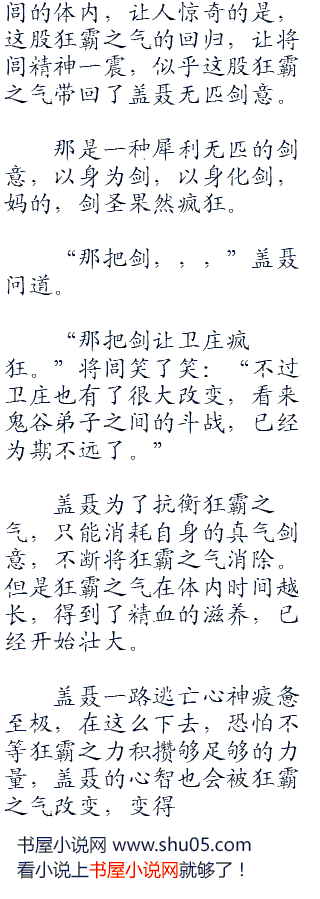 闾的体内，让人惊奇的是，
这股狂霸之气的回归，让将
闾精神一震，似乎这股狂霸
之气带回了盖聂无匹剑意。
那是一种犀利无匹的剑
意，以身为剑，以身化剑，
妈的，剑圣果然疯狂。
“那把剑，，，”盖聂
问道。
“那把剑让卫庄疯
狂。”将闾笑了笑：“不过
卫庄也有了很大改变，看来
鬼谷弟子之间的斗战，已经
为期不远了。”
盖聂为了抗衡狂霸之
气，只能消耗自身的真气剑
意，不断将狂霸之气消除。
但是狂霸之气在体内时间越
长，得到了精血的滋养，已
经开始壮大。
盖聂一路逃亡心神疲惫
至极，在这么下去，恐怕不
等狂霸之力积攒够足够的力
量，盖聂的心智也会被狂霸
之气改变，变得
书屋小说网 www.shu05.com
看小说上书屋小说网就够了！